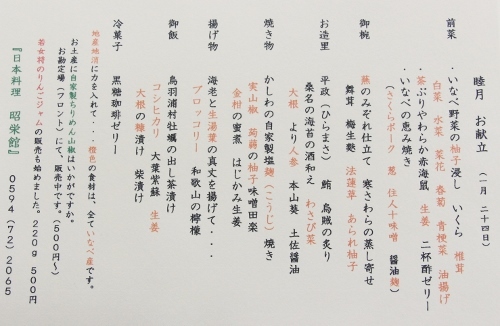 睦月 お献立 (一月 二十四日)
前菜
・いなべ野菜の柚子浸し いくら 椎茸
白菜 水菜 菜花 春菊 青梗菜 油揚げ
・茶ぶりやわらか赤海鼠 生姜 二杯酢ゼリー
・いなべの恵み焼き
(さくらポーク 葱 住人十味噌 醤油麹)
御椀
蕪のみぞれ仕立て 寒さわらの蒸し寄せ
舞茸 梅生麩 法蓮草 あられ柚子
お造里
平政(ひらまさ) 鮪 烏賊の炙り
桑名の海苔の酒和え わさび菜
大根 より人参 本山葵 土佐醤油
焼き物
かしわの自家製塩麹(こうじ)焼き
実山椒 蒟蒻の柚子味噌田楽
金柑の蜜煮 はじかみ生姜
揚げ物
海老と生湯葉の真丈を揚げて・・・
ブロッコリー 和歌山の檸檬
御飯
鳥羽浦村牡蠣の出し茶漬け
コシヒカリ 大葉紫蘇 生姜
大根の糠漬け 柴漬け
冷菓子
黒糖珈琲ゼリー
地産地消に力を入れて・・・橙色の食材は、全ていなべ産です。
お土産に自家製ちりめん山椒はいかがですか。
お勘定場(フロント)にて、販売中です。(500円〜)
若女将のりんごジャムの販売も始めました。220g 500円
『日本料理 昭栄館』 0594(72)2065